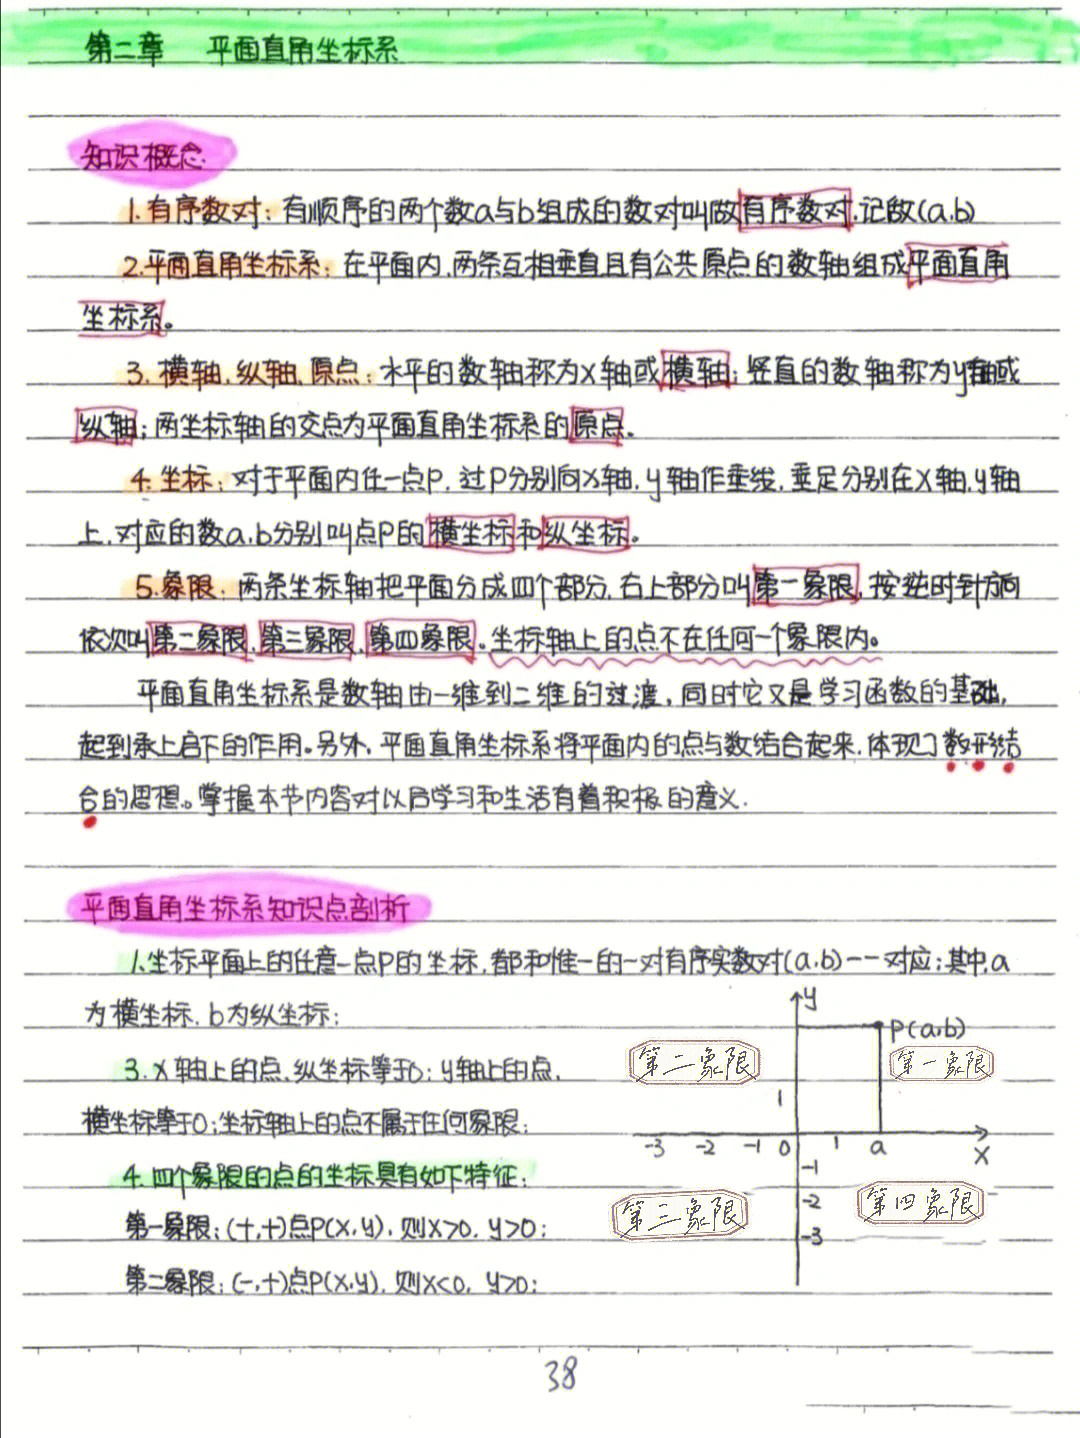 第二章 平面直角坐标系
知识概念
1.有序数对：有顺序的两个数a与b组成的数对叫做有序数对.记做(a.b)
2.平面直角坐标系：在平面内.两条互相垂直且有公共原点的数轴组成平面直角
坐标系。
3. 横轴.纵轴.原点：水平的数轴称为X轴或横轴；竖直的数轴称为y轴或
纵轴；两坐标轴的交点为平面直角坐标系的原点。
4.坐标：对于平面内任一点P，过P分别向X轴.y轴作垂线，垂足分别在X轴.y轴
上.对应的数a.b分别叫点P的横坐标和纵坐标。
5.象限：两条坐标轴把平面分成四个部分.右上部分叫第一象限，按逆时针方向
依次叫第二象限.第三象限.第四象限。坐标轴上的点不在任何一个象限内。
平面直角坐标系是数轴由一维到二维的过渡，同时它又是学习函数的基础，
起到承上启下的作用。另外，平面直角坐标系将平面内的点与数结合起来.体现了数形结
合的思想。掌握本节内容对以后学习和生活有着积极的意义.
平面直角坐标系知识点剖析
1.坐标平面上的任意一点P的坐标.都和惟一的一对有序实数对(a.b)一一对应；其中.a
为横坐标.b为纵坐标；
3.X轴上的点.纵坐标等于0；y轴上的点.
横坐标等于0；坐标轴上的点不属于任何象限；
4.四个象限的点的坐标具有如下特征：
第一象限：(+,+)点P(X,y)，则X>0，y>0；
第二象限：(-,+)点P(X,y)，则X<0，y>0；
y
P(a.b)
第二象限
第一象限
1
-3 -2 -1 0 1 a X
-1
-2
-3
第三象限
第四象限
38